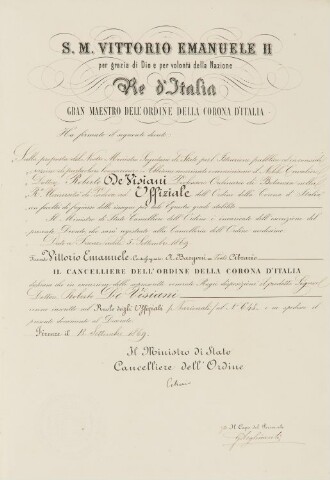 S. M. VITTORIO EMANUELE II
per grazia di Dio e per volontà della Nazione
Re d'Italia
GRAN MAESTRO DELL'ORDINE DELLA CORONA D'ITALIA
Ha firmato il seguente decreto:
Sulla proposta del Nostro Ministro Segretario di Stato per l'Istruzione pubblica
Dottor Roberto De Visiani Professore Ordinario di Botanica nella
R.ª Università di Padova ad Uffiziale dell'Ordine della Corona d'Italia
con facoltà di fregiarsi delle insegne per tale Equestre grado stabilite
Il Ministro di Stato Cancelliere dell'Ordine è incaricato dell'esecuzione del
presente Decreto che sarà registrato alla Cancelleria dell'Ordine medesimo
Dato a 5 Settembre 1869
Firmato Vittorio Emanuele Contrassegnato A. Bargoni Visto Cibrario
IL CANCELLIERE DELL'ORDINE DELLA CORONA D'ITALIA
dichiara che in esecuzione delle Regie disposizioni il predetto Signor
Dottor Roberto De Visiani
venne inscritto nel Ruolo degli Uffiziali N.° 644 e ne spedisce il
presente documento al Decorato.
Firenze il 12 Settembre 1869.
Il Ministro di Stato
Cancelliere dell'Ordine
Il Capo del Personale